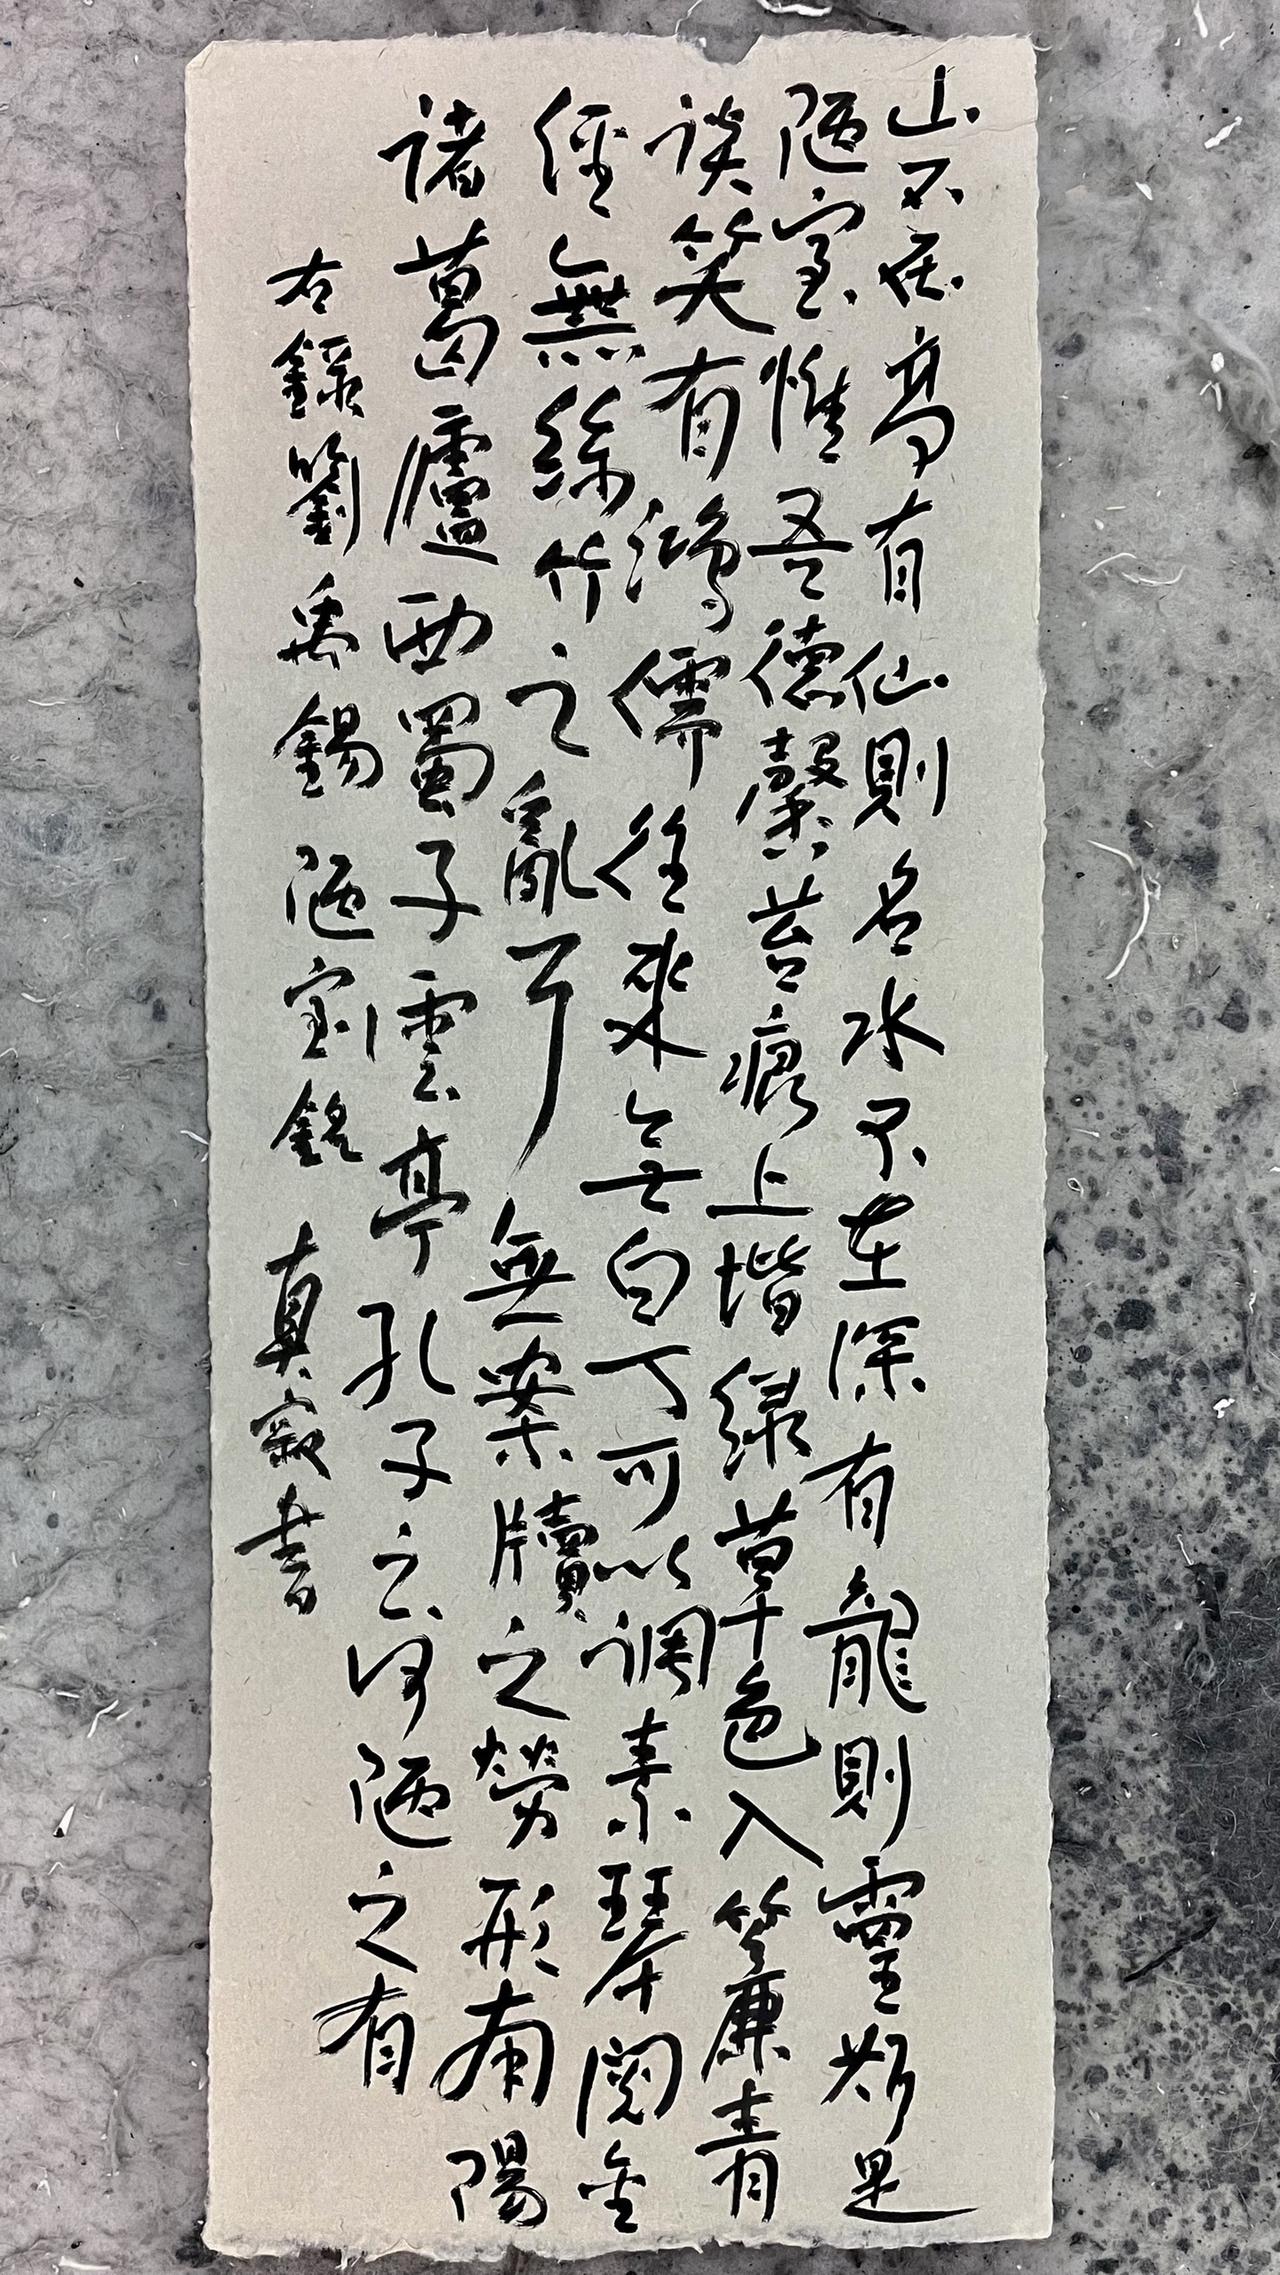 山不在高有仙則名水不在深有龍則靈斯是
陋室惟吾德馨苔痕上堦緑草色入簾青
談笑有鴻儒往來無白丁可以調素琴閱金
經無絲竹之亂耳無案牘之勞形南陽
諸葛廬西蜀子雲亭孔子云何陋之有
右錄劉禹錫陋室銘 真寂書